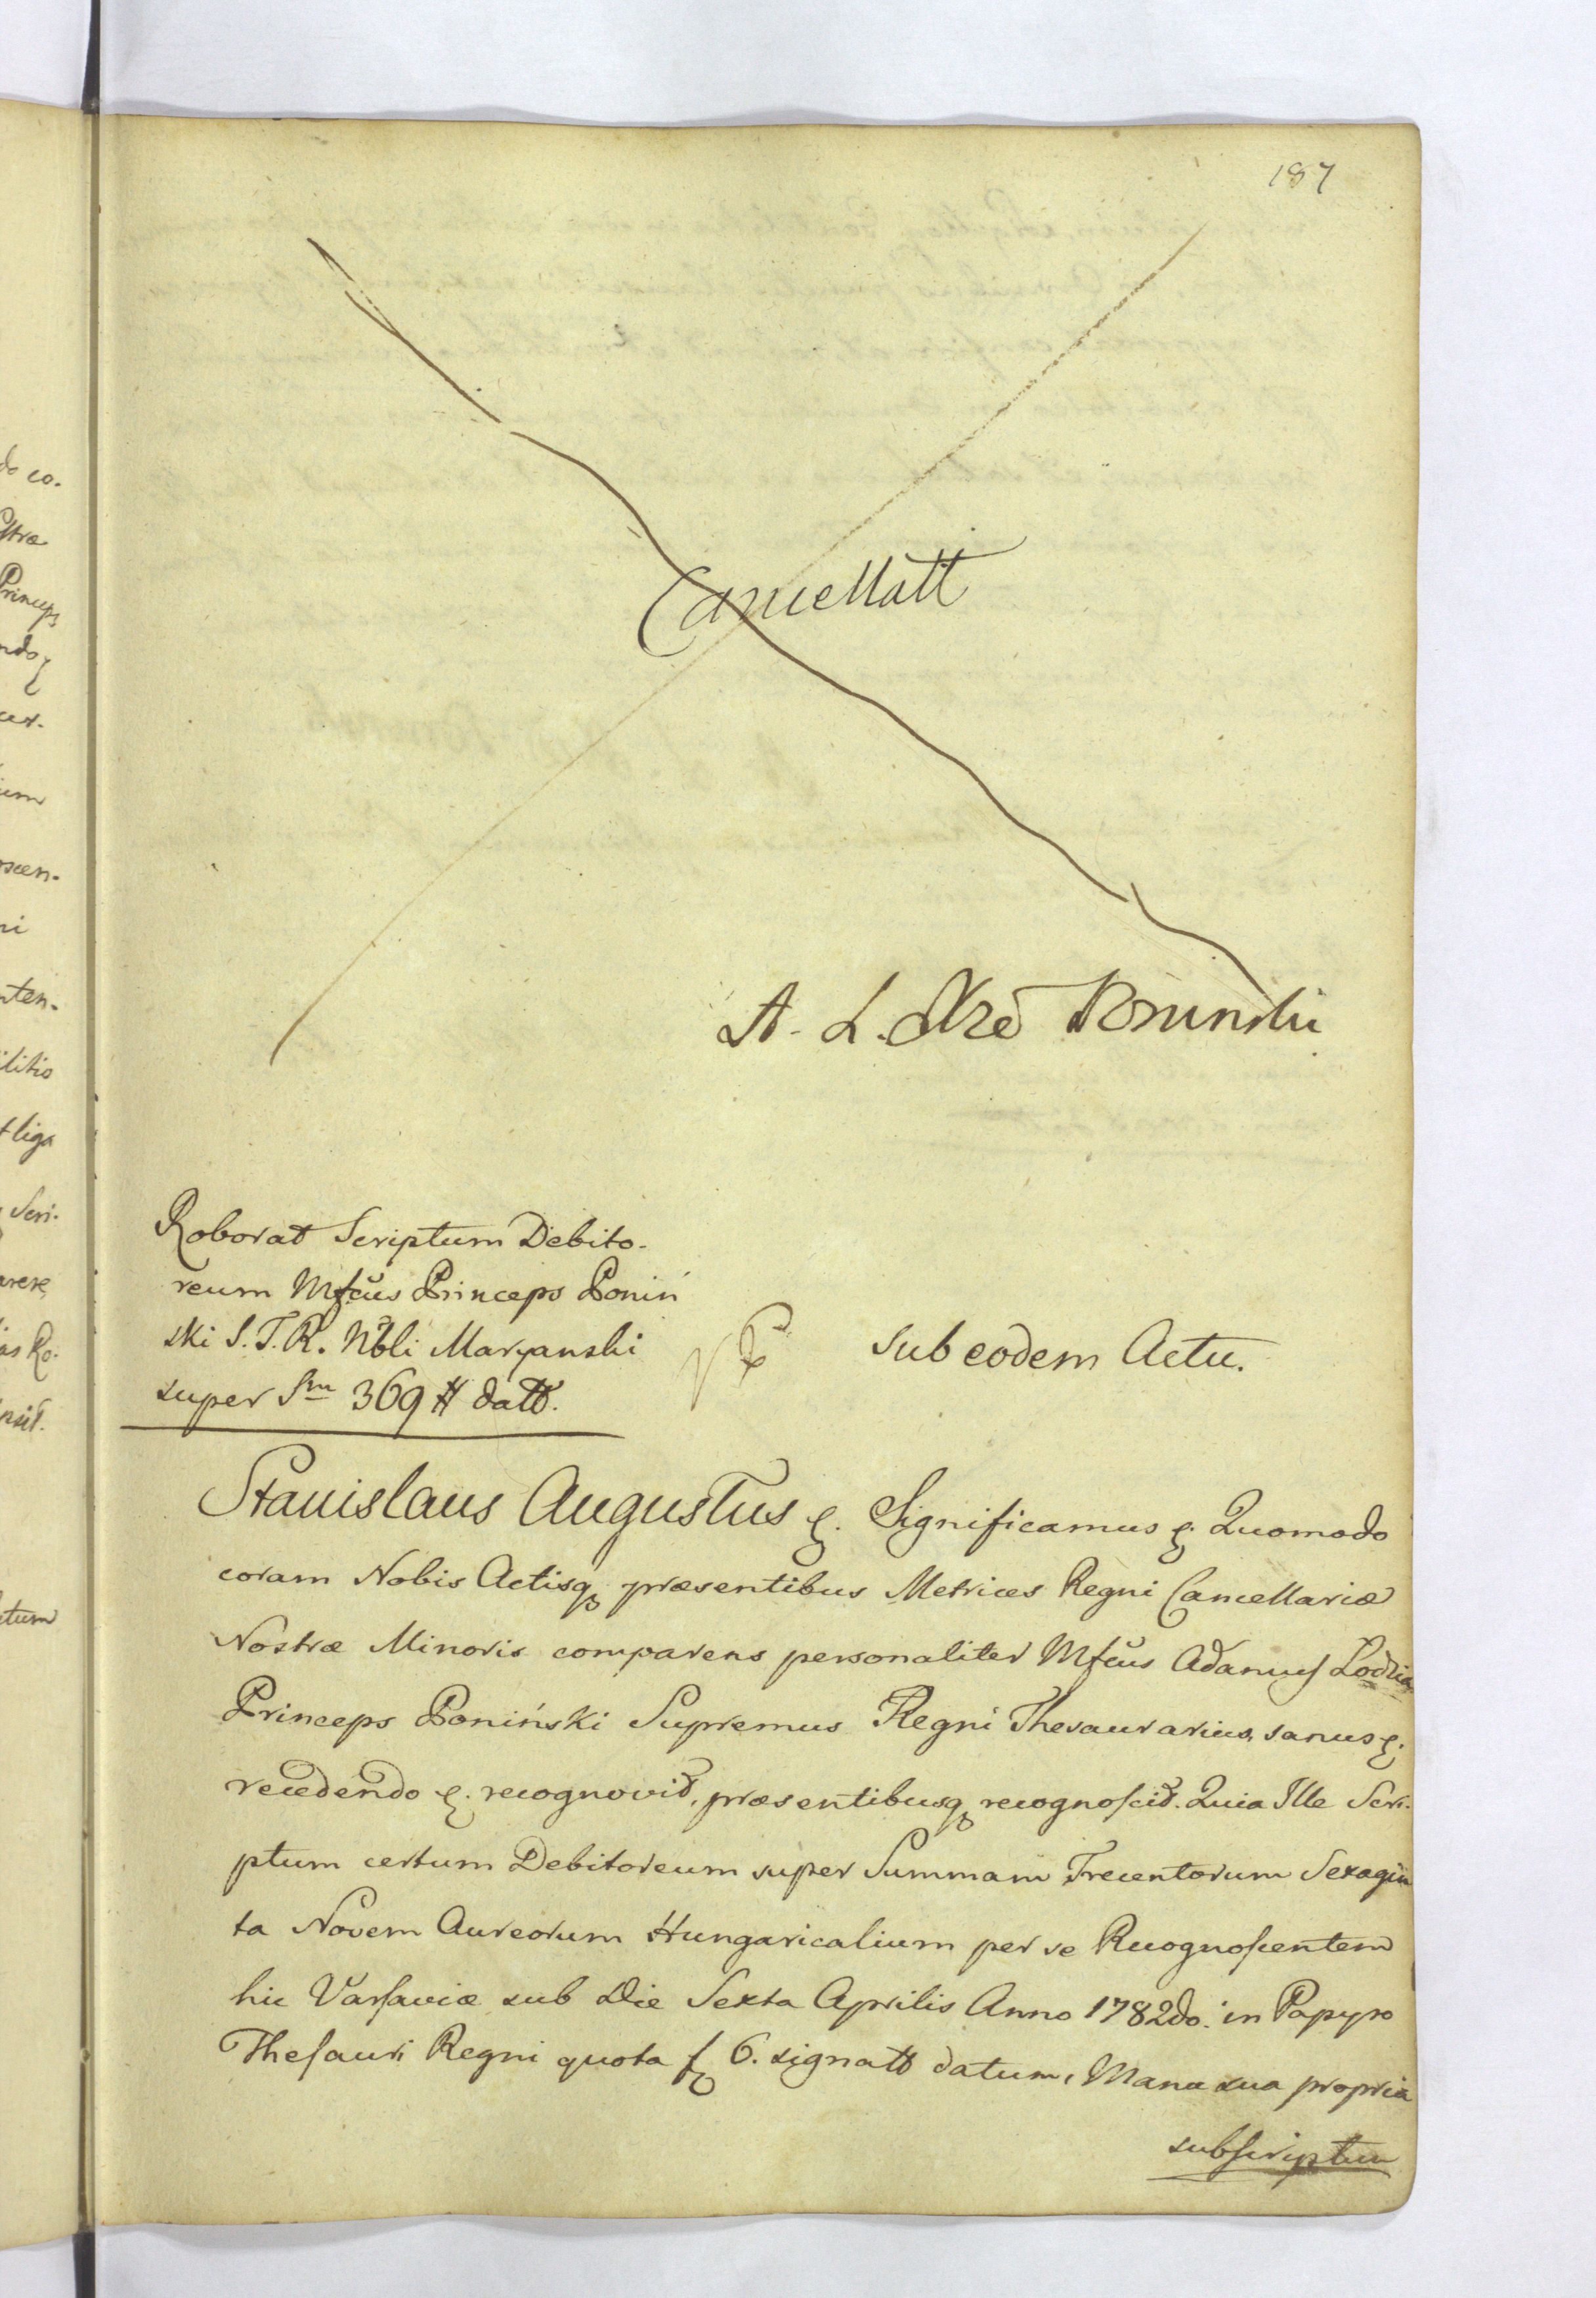 187
Cancellatt
A. L.
Roborat Scriptum Debito-
reum Mfcus Princeps Poniń
ski S. T. R. Nbli Maryanski
super Sm 369 # datt.
sub eodem Actu.
Stanislaus Augustus &. Significamus &. Quomodo
coram Nobis Actisq præsentibus Metrices Regni Cancellariæ
Nostræ Minoris comparens personaliter Mfcus Adamus Łodzia
Princeps Poniński Supremus Regni Thesaurarius, sanus &.
recedendo &. recognovit, præsentibusq recognoscit. Quia Ille Scri-
ptum certum Debitoreum super Summam Trecentorum Sexagin
ta Novem Aureorum Hungaricalium per se Recognoscentem
hic Varsaviæ sub Die Sexta Aprilis Anno 1782do. in Papyro
Thesauri Regni quota f 6. signatt datum, Manu sua propria
subscriptum
do co-
stræ
Princeps
cer-
scen-
ten-
litio
liga
Scri-
as Ro-